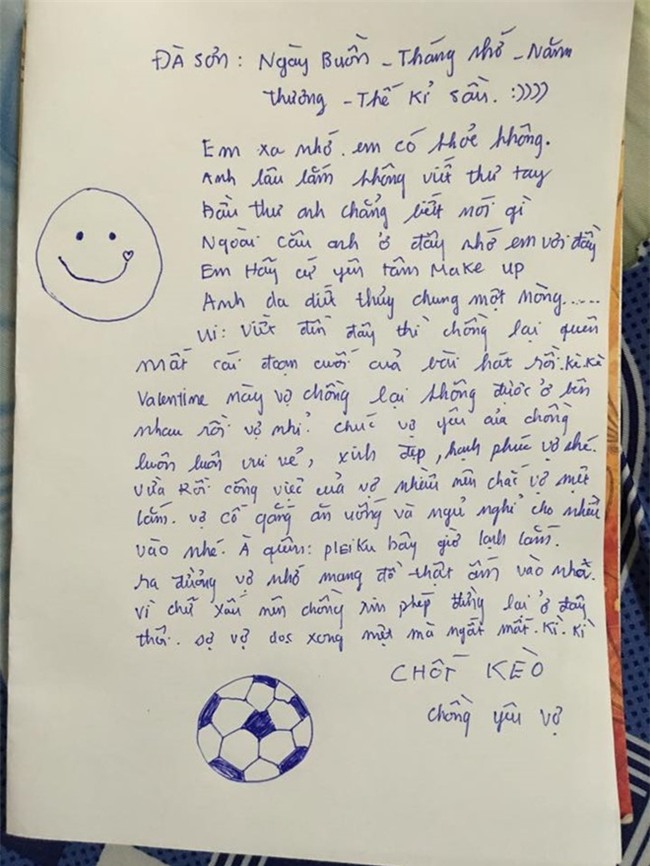 ĐÀ SƠN: Ngày Buồn - Tháng nhớ - Năm
thương - Thế kỉ sầu. :))))
Em xa nhớ. em có khỏe không.
Anh lâu lắm không viết thư tay
Đầu thư anh chẳng biết nói gì
Ngoài câu anh ở đây nhớ em vơi đầy
Em Hãy cứ yên tâm Make up
Anh da diết thủy chung một lòng......
Ui: Viết đến đây thì chồng lại quên
mất cái đoạn cuối của bài hát rồi. Kì. Kì
Valentine này vợ chồng lại không được ở bên
nhau rồi vợ nhỉ? chúc vợ yêu của chồng
luôn luôn vui vẻ, xinh đẹp, hạnh phúc vợ nhé.
Vừa Rồi công việc của vợ nhiều nên chắc vợ mệt
lắm. vợ cố gắng ăn uống và ngủ nghỉ cho nhiều
vào nhé. À quên: pleiku bây giờ lạnh lắm.
ra đường vợ nhớ mang đồ thật ấm vào nhé.
vì chữ xấu nên chồng xin phép dừng lại ở đây
thôi. sợ vợ đọc xong mệt mà ngất mất. Kì. Kì
CHỐT KÈO
chồng yêu vợ